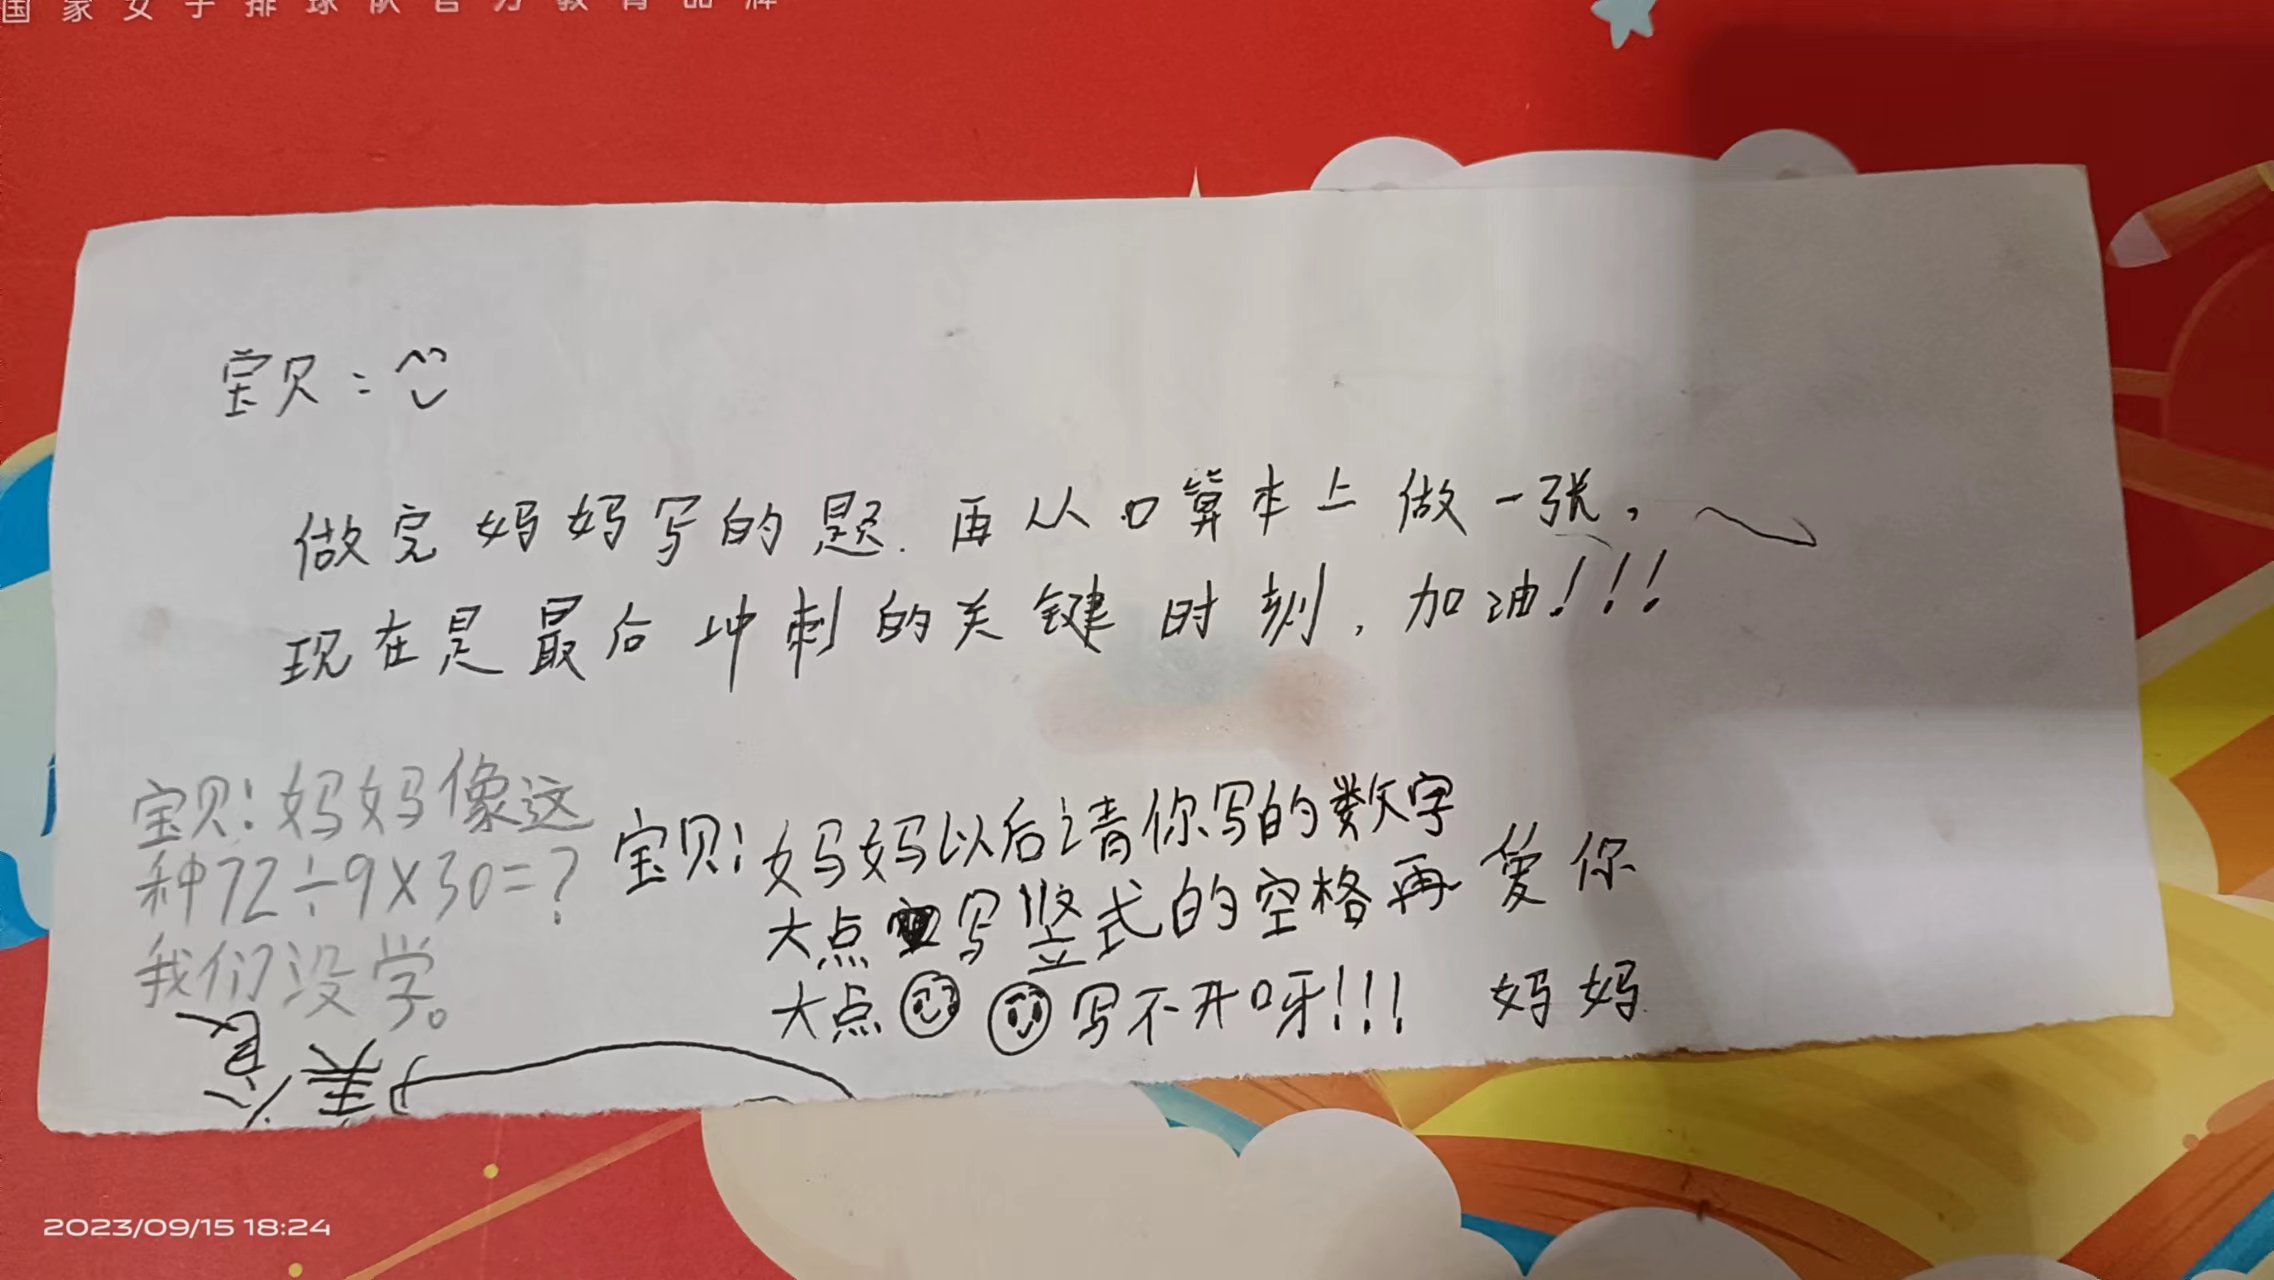 国家女子排球队官方教育品牌
宝贝：
做完妈妈写的题.再从口算本上做一张,
现在是最后冲刺的关键时刻,加油!!!
宝贝:妈妈像这
种72÷9×30=?
我们没学。
宝贝:妈妈以后请你写的数字
大点写竖式的空格再
大点写不开呀!!!
爱你
妈妈
美食
2023/09/15 18:24